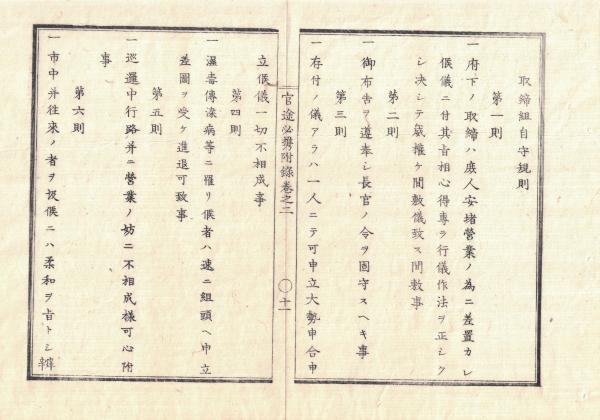 取締組自守規則
第一則
一府下ノ取締ハ庶人安堵營業ノ為ニ差置カレ
候儀ニ付其旨相心得專ラ行儀作法ヲ正シク
シ决シテ威権ケ間敷儀致ス間敷事
第二則
一御布告ヲ遵奉シ長官ノ令ヲ固守スヘキ事
第三則
一存付ノ儀アラハ一人ニテ可申立大勢申合申
官途必携附録巻之二
〇十一
立候儀一切不相成事
第四則
一濕毒傳染病等ニ罹リ候者ハ速ニ組頭ヘ申立
差圖ヲ受ケ進退可致事
第五則
一巡邏中行路并ニ營業ノ妨ニ不相成様可心附
事
第六則
一市中并往來ノ者ヲ扱候ニハ柔和ヲ旨トシ